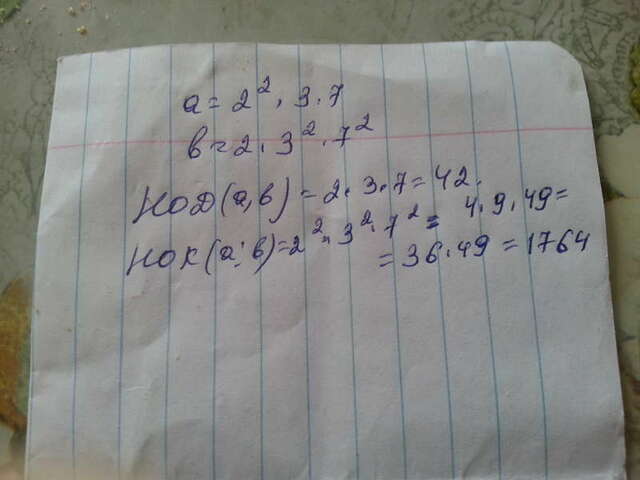 a = 2². 3. 7
в = 2. 3². 7²
НОД(a,в) = 2. 3. 7 = 42.
НОК(a;в)=2². 3². 7² = 4. 9. 49=
= 36. 49 = 1764